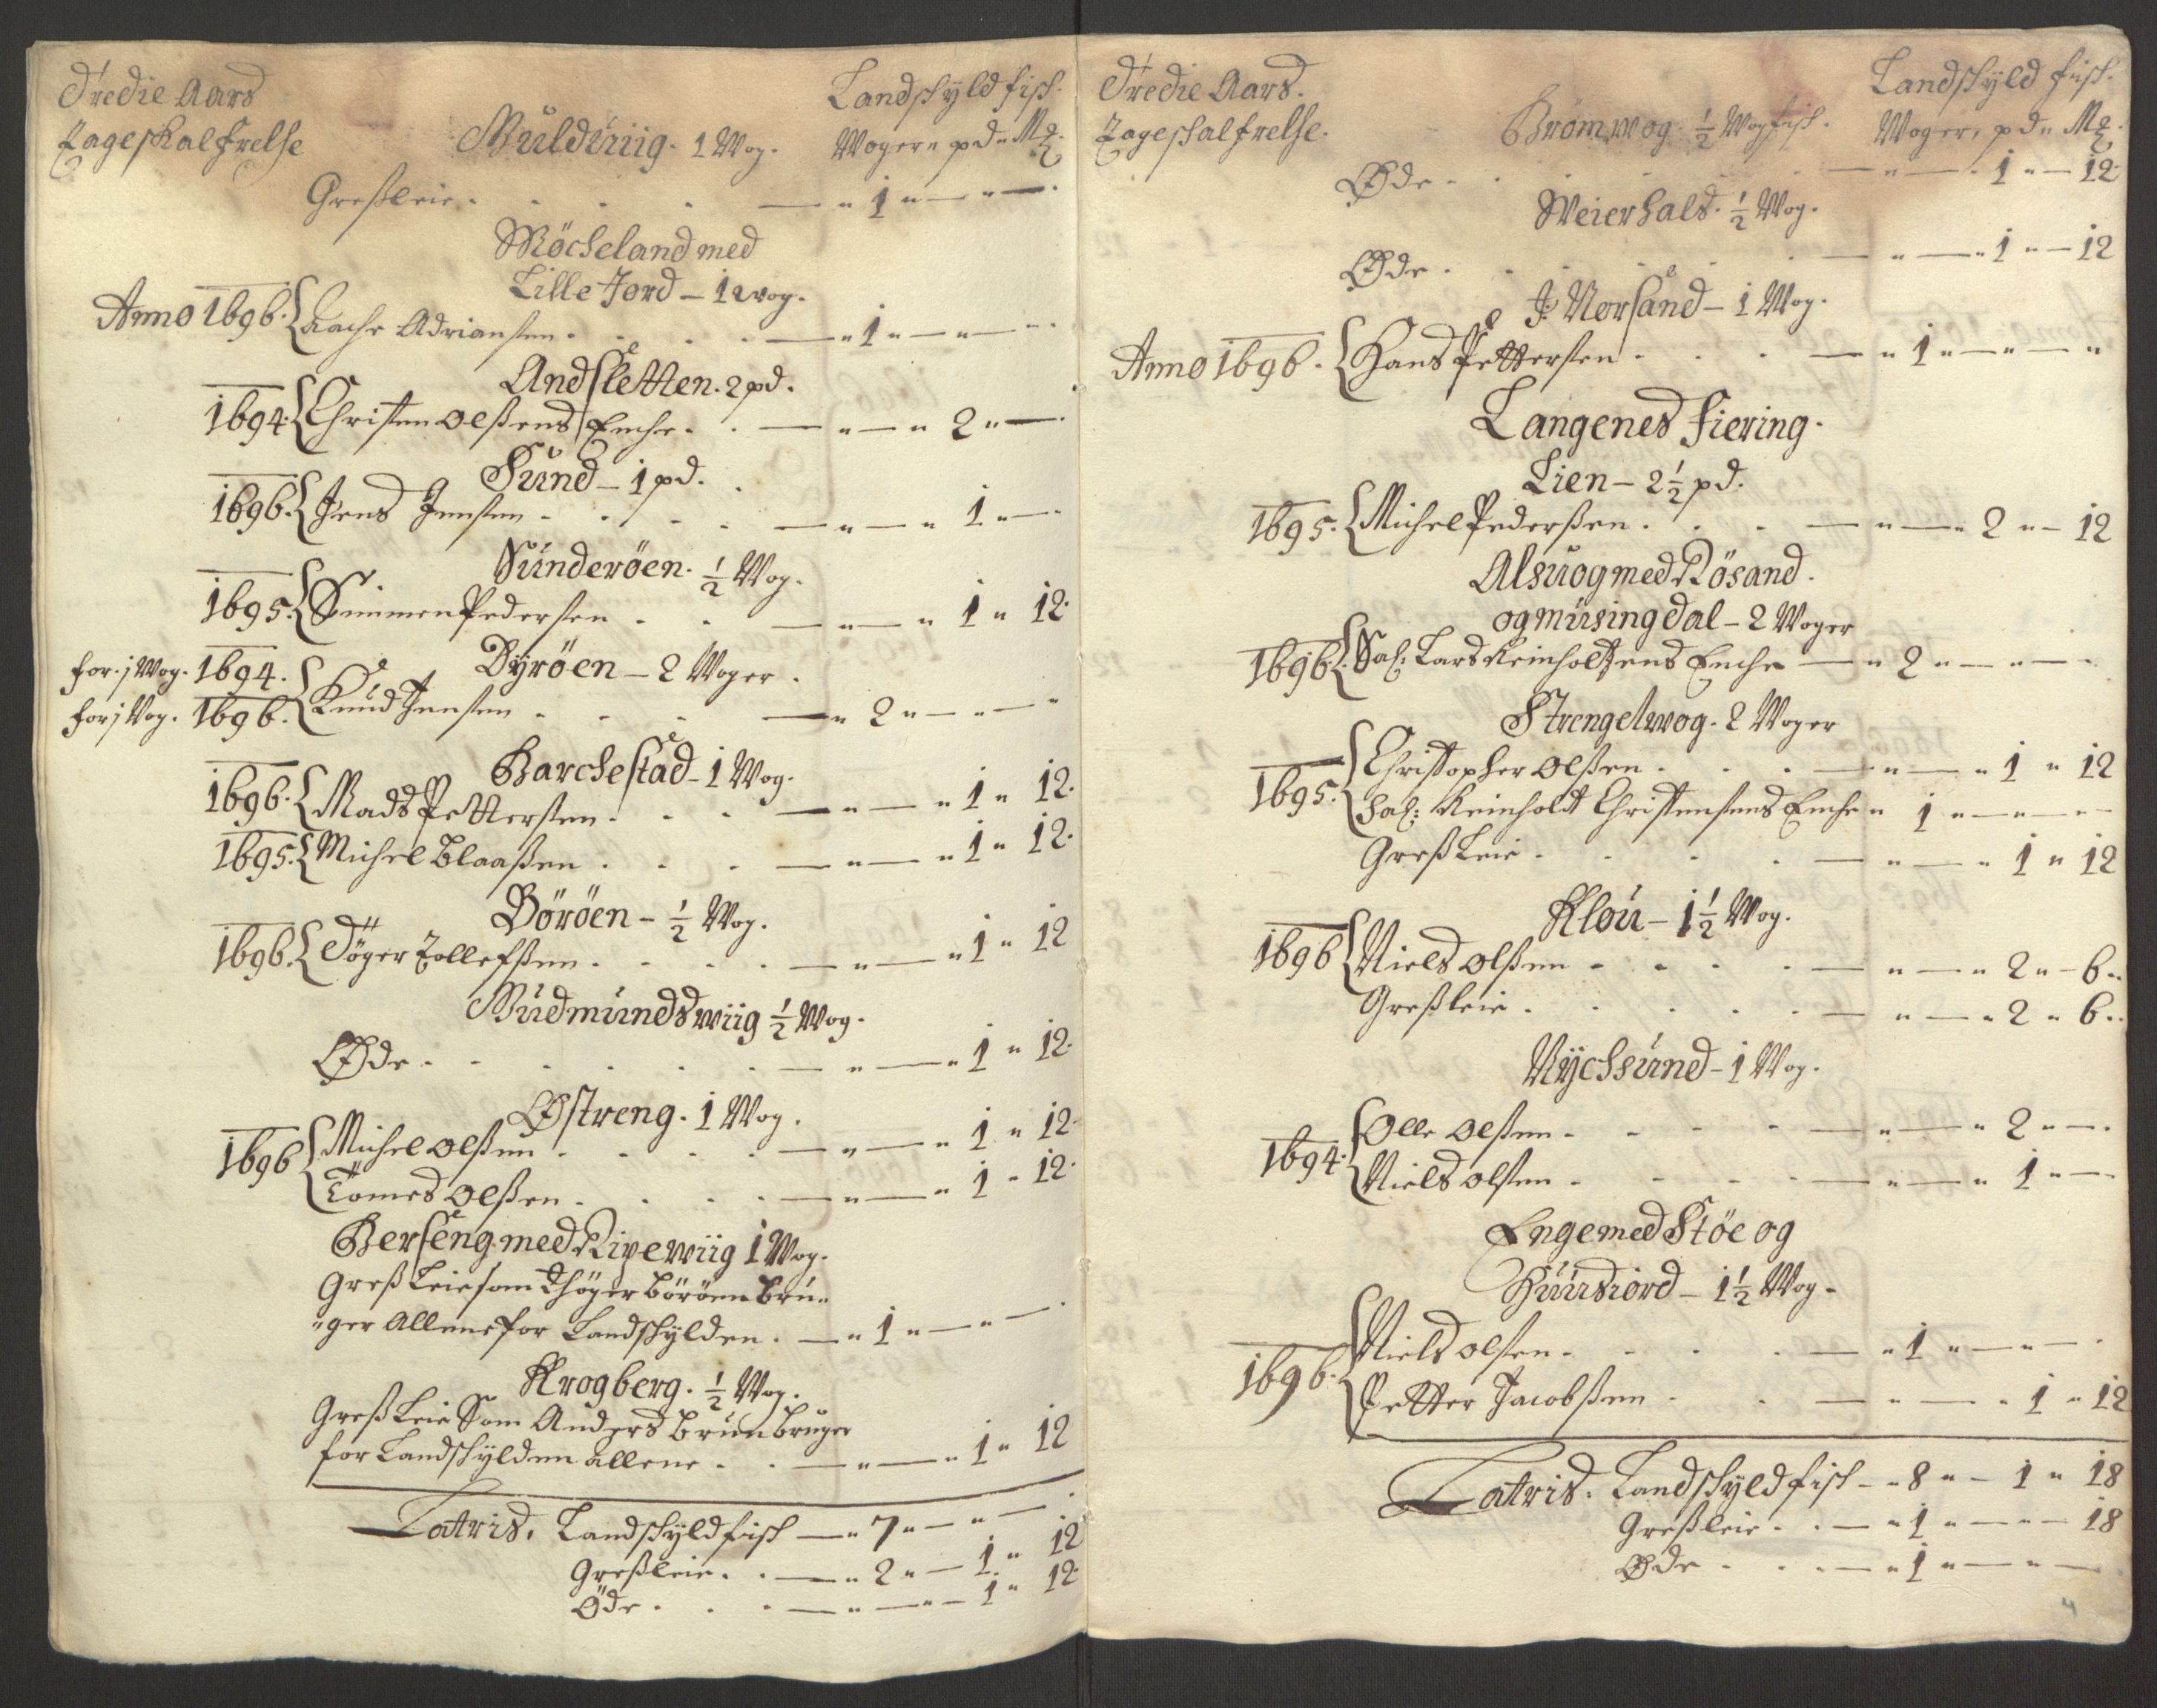 Tredie Aars
Tageskalfrelse
Landskyld fisk.
Muldwiig. 1 Wog. Woger " pd " Mk
Greßleie. . . . . — " 1 " — " —
Möcheland med
Lille Jord — 1 wog.
Anno 1696. { Aache Adriansen . . . — " 1 " — " —
Andsletten. 2 pd.
1694 { Christen Olßens Enche . . — " — " 2 " —
Sund — 1 pd.
1696. { Jens Jensen . . . . — " — " 1 " —
Sunderöen. ½ Wog.
1695. { Simmen Pedersen . . — " — " 1 " 12.
Dyröen — 2 Woger.
for. j Wog. 1694.
for j Wog. 1696. { Knud Jensen . . . — " 2 " — " —
Barchestad — 1 Wog.
1696. { Mads Pettersen . . . — " — " 1 " 12.
1695. { Michel Claaßen . . . — " — " 1 " 12.
Böröen — ½ Wog.
1696. { Töger Tollefßen . . . . — " — " 1 " 12
Gudmundswiig ½ Wog.
Øde . . . . . . — " — " 1 " 12.
Østreng. 1 Wog.
1696 { Michel Olßen . . . . — " — " 1 " 12.
Tomes Olßen . . . . — " — " 1 " 12.
Berseng med Ripewiig 1 Wog.
Greß Leie som Thöger Böröen Bru=
"ger Allene for Landskylden . — " 1 " — " —
Krogberg. ½ Wog.
Greß Leie Som Anders Brun bruger
for Landskylden allene . . — " — " 1 " 12
Latris. Landskyld fisk — " 7 " — " —
Greßleie . . — " 2 " — 1 " 12
Öde . . . — " — " — 1 " 12.
Tredie Aars.
Tageskalfrelse.
Landskyld fisk.
Brömwog ½ Wog fisk. Woger, pd " Mk
Øde . . . . . — " — " 1 " — 12.
Weierhals. ½ Wog.
Øde . . . . . — " — " 1 " — 12
J. Norsand — 1 Wog.
Anno 1696. { Hans Pettersen . . . — " 1 " — " — "
Langenes Fiering.
Lien — 2 ½ pd.
1695. { Michel Pederßen . . . — " — " 2 " — 12
Alsuog med Rösand.
og musing dal — 2 Woger
1696. { Sal: Lars Reinholtzens Enche — " 2 " — " —
Strengelwog. 2 Woger
1695. { Christopher Olßen . . . — " — " 1 " 12
Sal: Reinholdt Christensens Enche " 1 " — " —
Greß Leie . . . . — " — " 1 " 12
Klou — 1 ½ Wog.
1696 { Niels Olßen . . . . — " — " 2 " — 6 "
Greßleie . . . . . — " — " 2 " 6 . .
Nychsund — 1 Wog.
1694. { Olle Olßen . . . . — " — " 2 " —
Niels Olsen . . . . — " — " 1 " —
Enge med Stöe og
Huusiord — 1 ½ Wog.
1696. { Niels Olsen . . . . — " 1 " — " —
Petter Jacobßen . . — " — " 1 " 12
Latris. Landskyld fisk — " 8 " — 1 " 18
Greßleie . . — " 1 " — " — 18
Øde . . . — " 1 " — " —
4